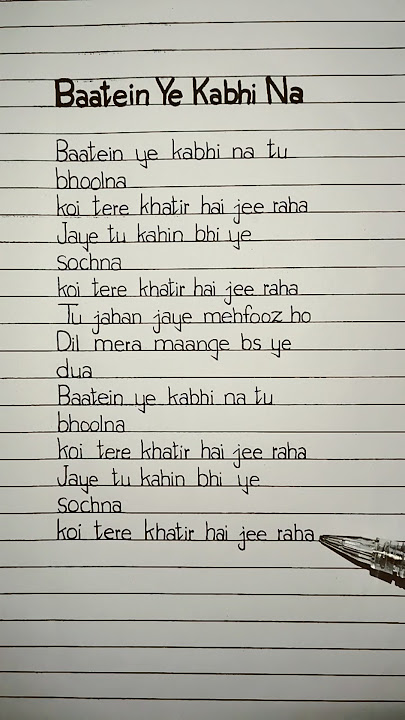 Baatein Ye Kabhi Na
Baatein ye kabhi na tu
bhoolna
koi tere khatir hai jee raha
Jaye tu kahin bhi ye
sochna
koi tere khatir hai jee raha
Tu jahan jaye mehfooz ho
Dil mera maange bs ye
dua
Baatein ye kabhi na tu
bhoolna
koi tere khatir hai jee raha
Jaye tu kahin bhi ye
sochna
koi tere khatir hai jee raha